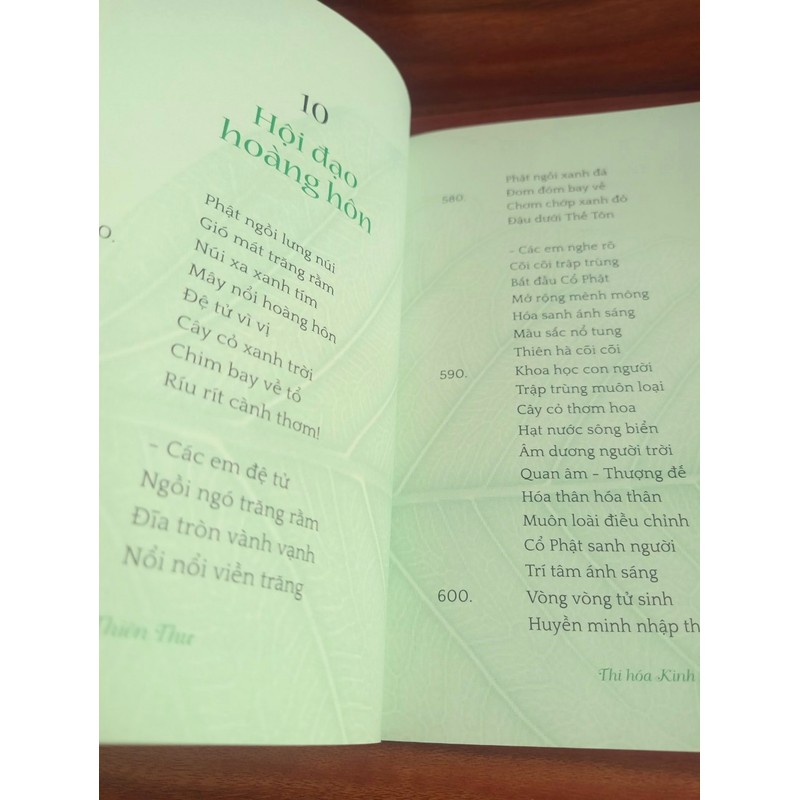 10
Hội đạo
hoàng hôn
0.
Phật ngồi lưng núi
Gió mát trăng rằm
Núi xa xanh tím
Mây nổi hoàng hôn
Đệ tử vì vị
Cây cỏ xanh trời
Chim bay về tổ
Ríu rít cành thơm!
– Các em đệ tử
Ngồi ngó trăng rằm
Đĩa tròn vành vạnh
Nổi nổi viền trăng
Thiên Thư
Phật ngồi xanh đá
580. Đom đóm bay về
Chơm chớp xanh đỏ
Đậu dưới Thế Tôn
– Các em nghe rõ
Cõi cõi trập trùng
Bắt đầu Cổ Phật
Mở rộng mênh mông
Hóa sanh ánh sáng
Màu sắc nổ tung
Thiên hà cõi cõi
590. Khoa học con người
Trập trùng muôn loại
Cây cỏ thơm hoa
Hạt nước sông biển
Âm dương người trời
Quan âm – Thượng đế
Hóa thân hóa thân
Muôn loài điều chỉnh
Cổ Phật sanh người
Trí tâm ánh sáng
600. Vòng vòng tử sinh
Huyền minh nhập th
Thi hóa Kinh